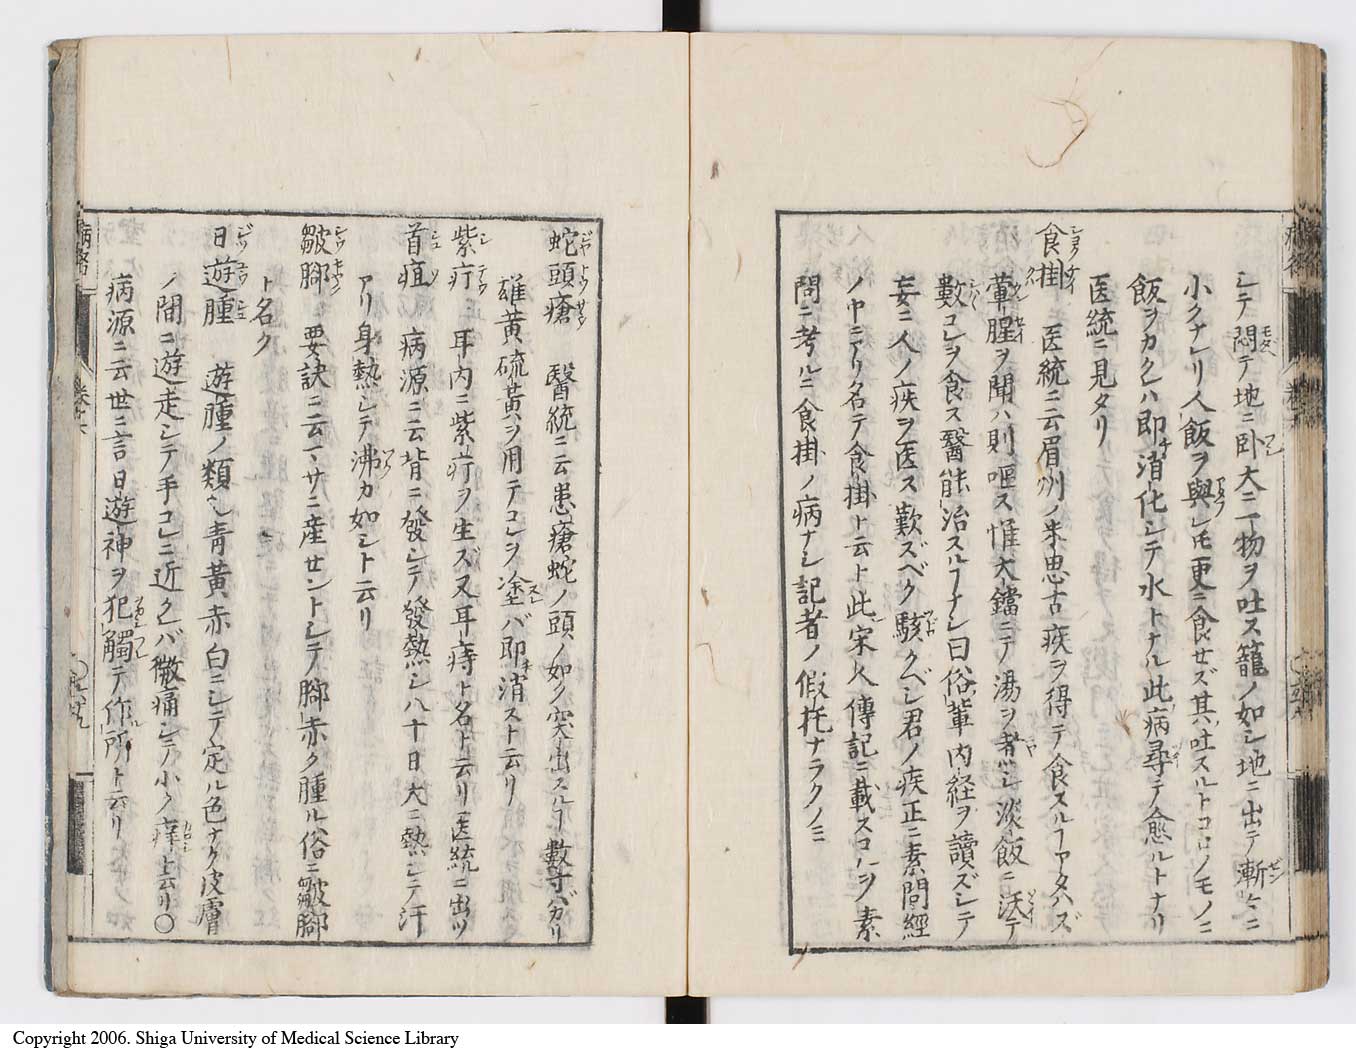 シテ悶テ地ニ卧大ニ一物ヲ吐ス籠ノ如シ地ニ出テ漸々ニ
小クナレリ人飯ヲ與レ𪜈更ニ食セズ其吐スルトコロノモノニ
飯ヲカクレハ即消化シテ水トナル此病尋テ愈ルトナリ
医統ニ見タリ
食掛 医統ニ云眉州ノ朱思古疾ヲ得テ食スルヿアタハズ
葷腥ヲ聞ハ則嘔ス惟大鐺ニテ湯ヲ煮シ淡飯ニ沃テ
數コレヲ食ス醫能治スルヿナシ曰俗輩内経ヲ讀ズシテ
妄ニ人ノ疾ヲ医ス歎ズベク駭クベシ君ノ疾正ニ素問經
ノ中ニアリ名テ食掛ト云ト此宋人傳記ニ載スコレヲ素
問ニ考ルニ食掛ノ病ナシ記者ノ假托ナラクノミ
蛇頭瘡 醫統ニ云患瘡蛇ノ頭ノ如ク突出スルヿ數寸バカリ
雄黄硫黄ヲ用テコレヲ塗バ即消スト云リ
紫疔 耳内ニ紫疔ヲ生ズ又耳痔ト名ト云リ医統ニ出ツ
首疽 病源ニ云背ニ發シテ發熱シ八十日大ニ熱シテ汗
アリ身熱シテ沸カ如シト云リ
皺脚 要訣ニ云マサニ産セントシテ脚赤ク腫ル俗ニ皺脚
ト名ク
日遊腫 遊腫ノ類也青黄赤白ニシテ定ル色ナク皮膚
ノ間ニ遊走シテ手コレニ近クバ微痛シテ小ク痒ト云リ〇
病源ニ云世ニ言日遊神ヲ犯觸テ作所ト云リ
Copyright 2006. Shiga University of Medical Science Library